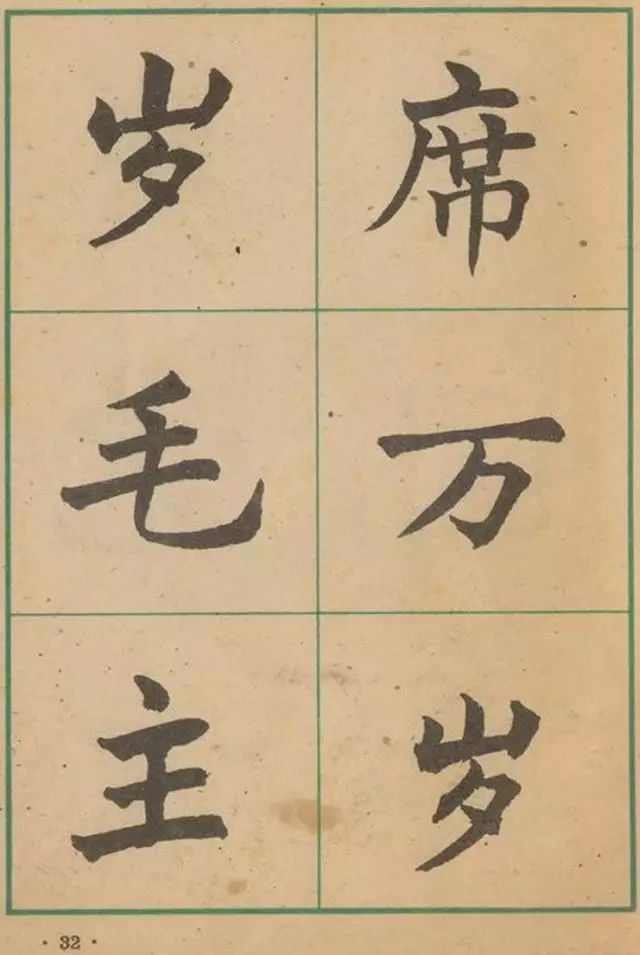 席万岁
岁毛主
·32·